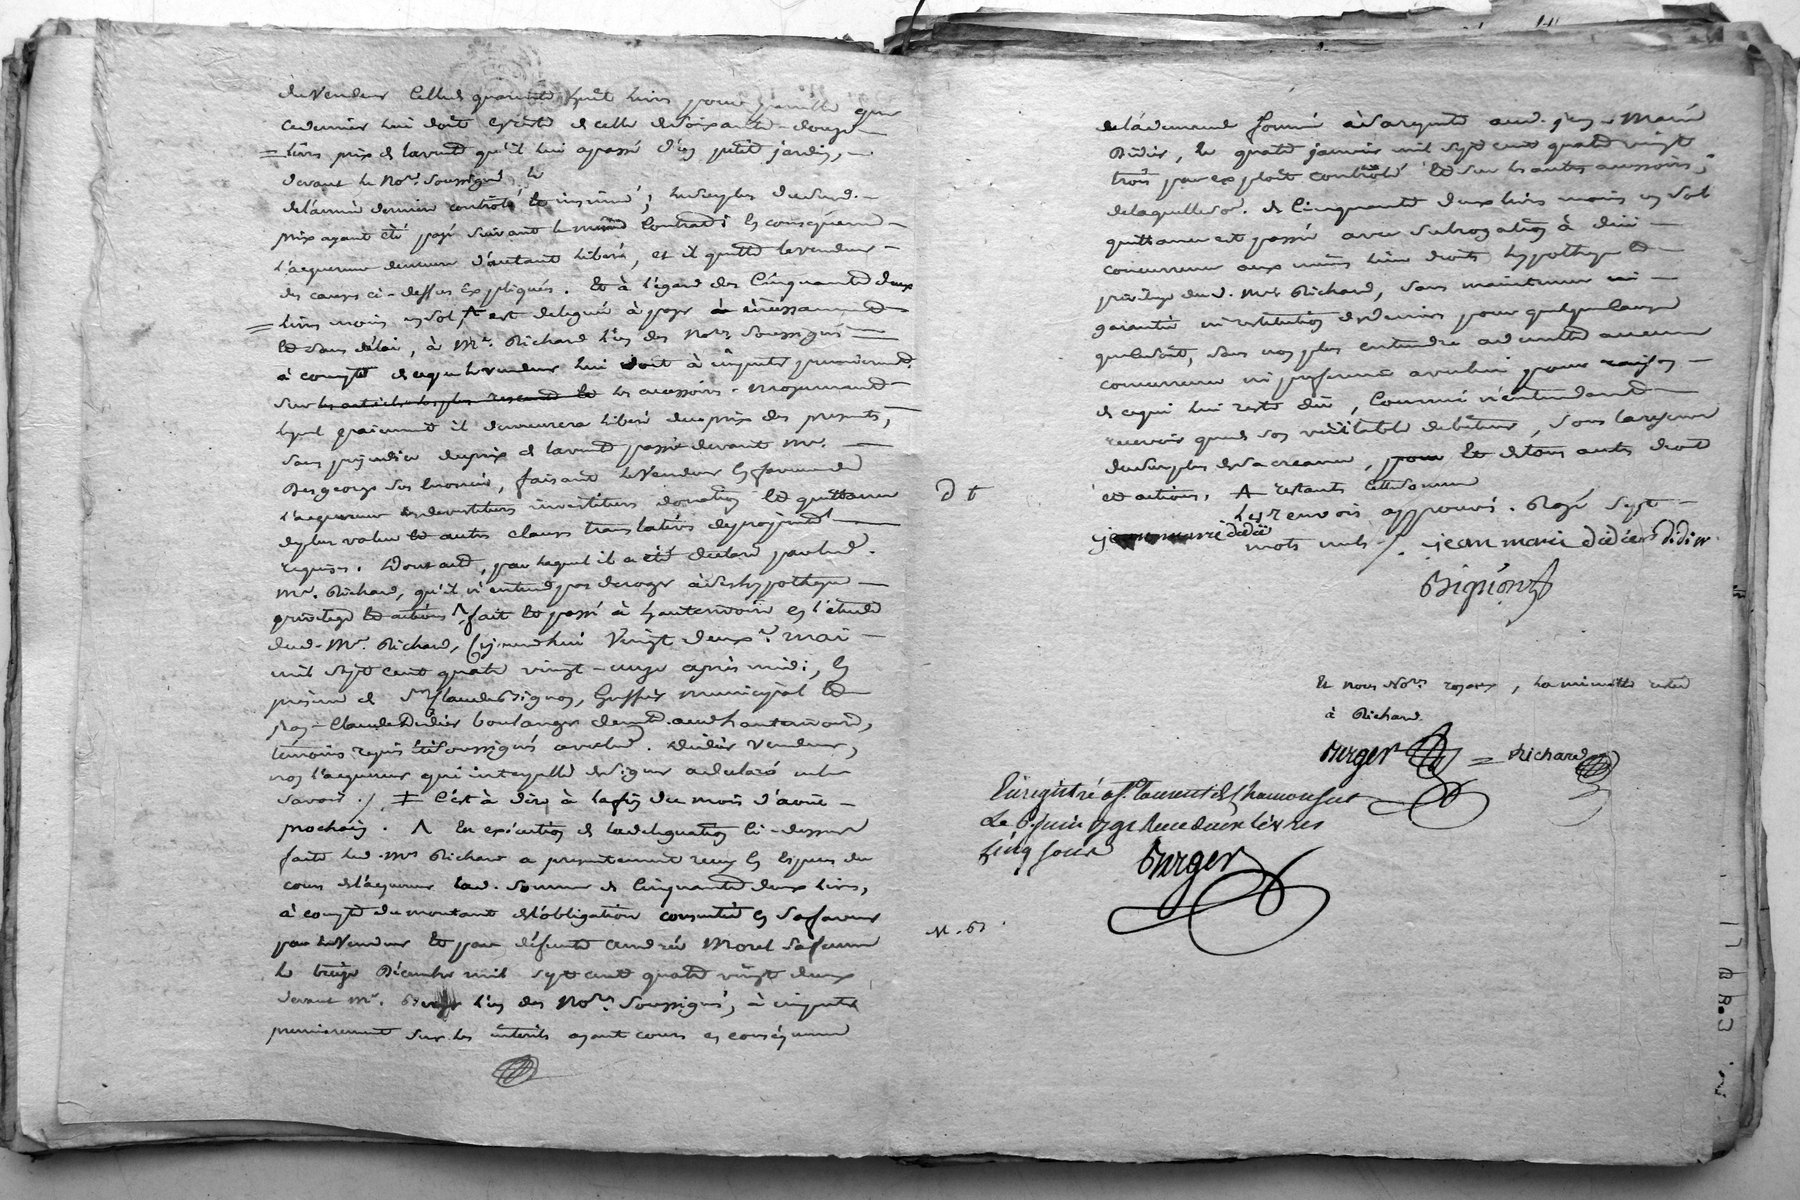 du vendeur Celle de quarante huit livres pour semille que
ce dernier lui doit et celle de soixante-douze
livres prix de la vente qu'il lui a passé d'un petit jardin,
devant le No.re soussigné le
de l'année dernière contrôlé et insinué; le surplus dud.
prix ayant été payé suivant le même Contrat: En conséquence
l'acquereur demeure d'autant libéré, et il quitte le vendeur
des causes ci-dessus Expliqués. Et à l'égard des Cinquante deux
livres moins un sol est delegué à payer incessamment
Et sans délai, à Mr. Richard l'un des No.res Soussignés
à compte de ce que le vendeur lui doit à imputer premierement
sur les accessoires. moyennant
lequel paiement il demeurera libéré du prix des presentes,
sans prejudice du prix de la vente passée devant Mr.
Desgeorge son Confrere, faisant le Vendeur En faveur de
l'acquereur les devestitures investitures donation Et quittance
de plus value Et autres clauses translatives de propriété
requises. Dont acte, par lequel il a été declaré par led.
Mr. Richard, qu'il n'entend pas deroger à ses hypotheque
privilege Et actions fait Et passé à hauterivoire En l'étude
dud. Mr. Richard, Cejourd'hui Vingt deux.e mai
mil sept cent quatre vingt-onze après midi, En
présence de Sr. Claude Bignon, Greffier municipal Et
Claude Didier boulanger demt. aud. hauterivoire,
temoins requis Et Soussignés avec led. Didier vendeur,
non l'acquereur qui interpellé de Signer a declaré ne le
savoir ./. ‡ C'est à dire à la fin du mois d'août
prochain. Λ En exécution de la delegation Ci-dessus
faite led. Mr. Richard a presentement reçu En Especes du
cours de l'acquereur lad. Somme de Cinquante deux livres,
à compte du montant de l'obligation consentie En Sa faveur
par le Vendeur Et par défunte andrée Morel Sa femme
le treize Décembre mil sept cent quatre vingt deux
devant Mr. l'un des No.res Soussignés, à imputer
premierement sur les interêts ayant cours En conséquence
de la demande formée à Sa requete aud. Jean Marie
Didier, le quatre janvier mil sept cent quatre vingt
trois par exploit contrôlé Et sur les autres accessoires;
de laquelle so. de Cinquante deux livres moins un sol
quittance est passée avec subrogation à due
concurrence aux mêmes lieu droits hypotheque Et
privilege dud. Mr. Richard, sans maintenue ni
garantie ni restitution de deniers pour quelque cause
que ce soit, sans non plus entendre admettre aucune
concurrence ni preference avec lui pour raison
de ce qui lui reste dû, Comme n'entendant
recevoir que de son veritable debiteur, sous la reserve
du surplus de Sa creance, Et de tous autres droits
et actions. Λ restants Cette Somme
Les renvois approuvés. Rayé sept
mots nuls ./.
jean marie didie
jean marie didier didier
Bignon
d t
Et nous No.res royaux, La minute restée
à Richard.
Burger = Richard
Enregistré a St. Laurent de Chamousset
Le 6. juin 1791 Recu deux livres
Cinq sols
Burger